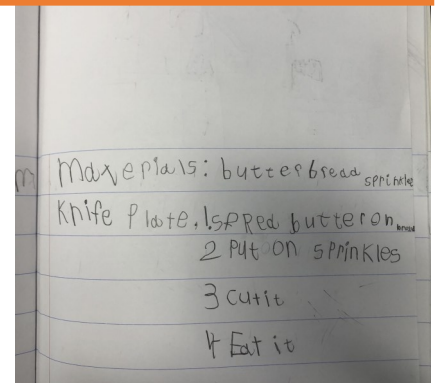 m Materials: butter bread sprinkle
Knife Plate. 1. spRed butter on bread
2 Put on sprinkles
3 cut it
4 Eat it